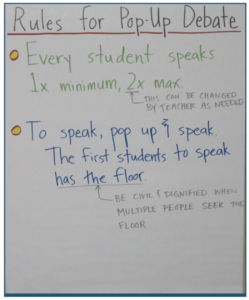 Rules for Pop-Up Debate
Every student speaks
1x minimum, 2x max.
THIS CAN BE CHANGED
BY TEACHER AS NEEDED
To speak, pop up & speak.
The first students to speak
has the floor.
BE CIVIL & DIGNIFIED WHEN
MULTIPLE PEOPLE SEEK THE
FLOOR